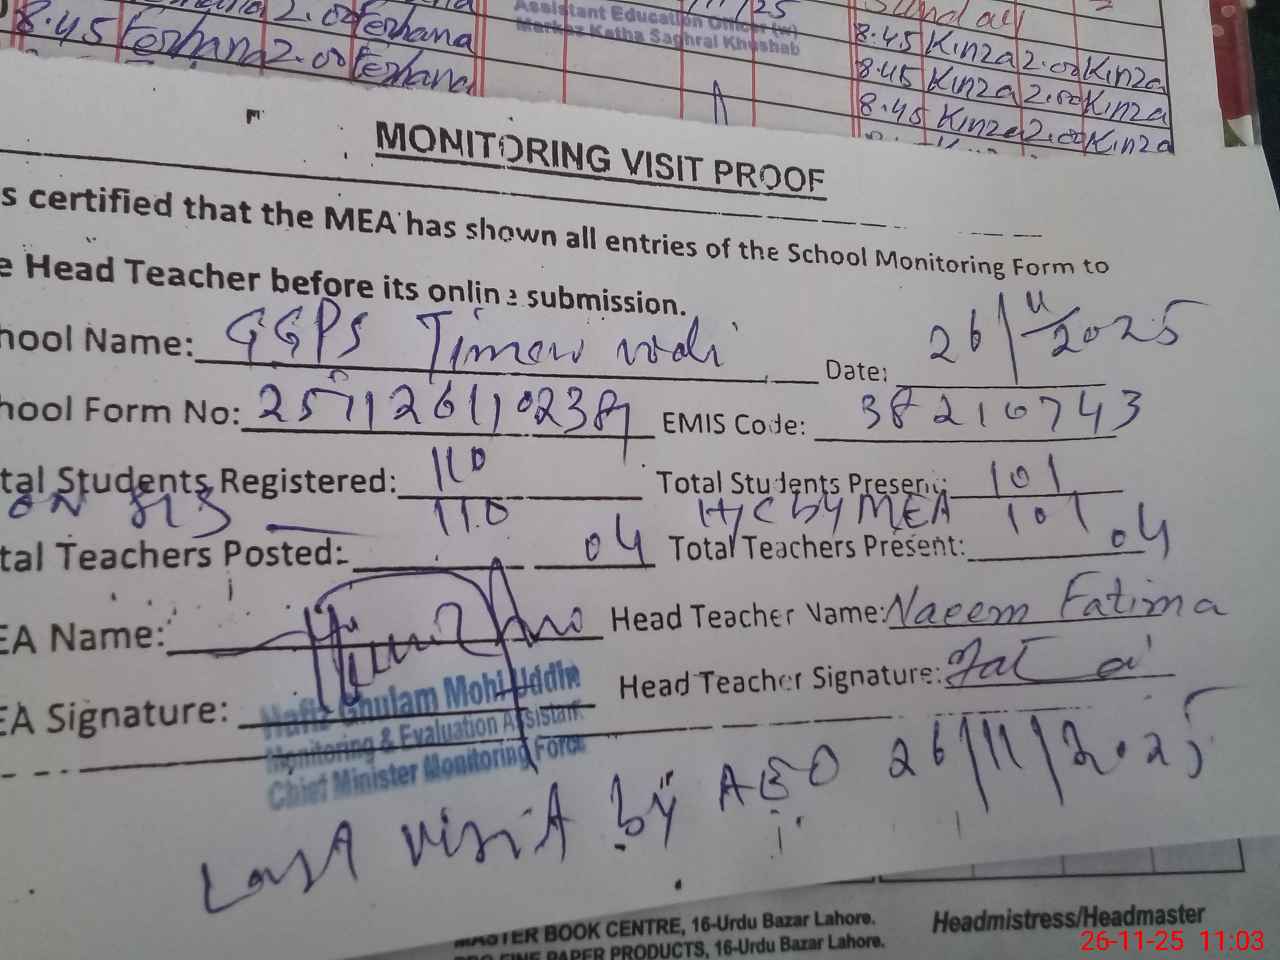 8.45 Ferhana 2.00 Ferhana
8.45 Ferhana 2.00 Ferhana
Assistant Education Officer (w)
Markaz Katha Saghral Khushab
8.45 Kinza 2.00 Kinza
8.45 Kinza 2.00 Kinza
8.45 Kinza 2.00 Kinza
MONITORING VISIT PROOF
s certified that the MEA has shown all entries of the School Monitoring Form to
e Head Teacher before its online submission.
hool Name: GGPS Date: 26/11/2025
hool Form No: EMIS Code: 38210743
tal Students Registered: 110 Total Students Present: 101
ON SIS 110 H/C by MEA 101
tal Teachers Posted: 04 Total Teachers Present: 04
EA Name: Head Teacher Name: Naeem Fatima
EA Signature: Head Teacher Signature:
Hafiz Ghulam Mohi Uddin
Monitoring & Evaluation Assistant
Chief Minister Monitoring Force
Last visit by AEO 26/11/2025
MASTER BOOK CENTRE, 16-Urdu Bazar Lahore.
FINE PAPER PRODUCTS, 16-Urdu Bazar Lahore.
Headmistress/Headmaster
26-11-25 11:03